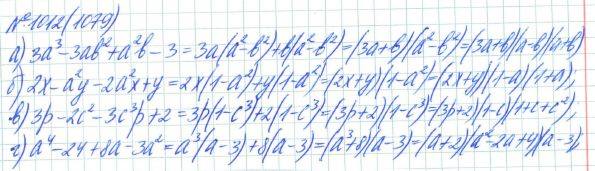 № 1012(1079)
а) 3a³ - 3ab² + a²b - 3 = 3a(a² - b²) + b(a² - b²) = (3a + b)(a² - b²) = (3a + b)(a - b)(a + b)
б) 2x - a²y - 2a²x + y = 2x(1 - a²) + y(1 - a²) = (2x + y)(1 - a²) = (2x + y)(1 - a)(1 + a);
в) 3p - 2c² - 3c³p + 2 = 3p(1 - c³) + 2(1 - c³) = (3p + 2)(1 - c³) = (3p + 2)(1 - c)(1 + c + c²);
г) a⁴ - 24 + 8a - 3a² = a³(a - 3) + 8(a - 3) = (a³ + 8)(a - 3) = (a + 2)(a² - 2a + 4)(a - 3)